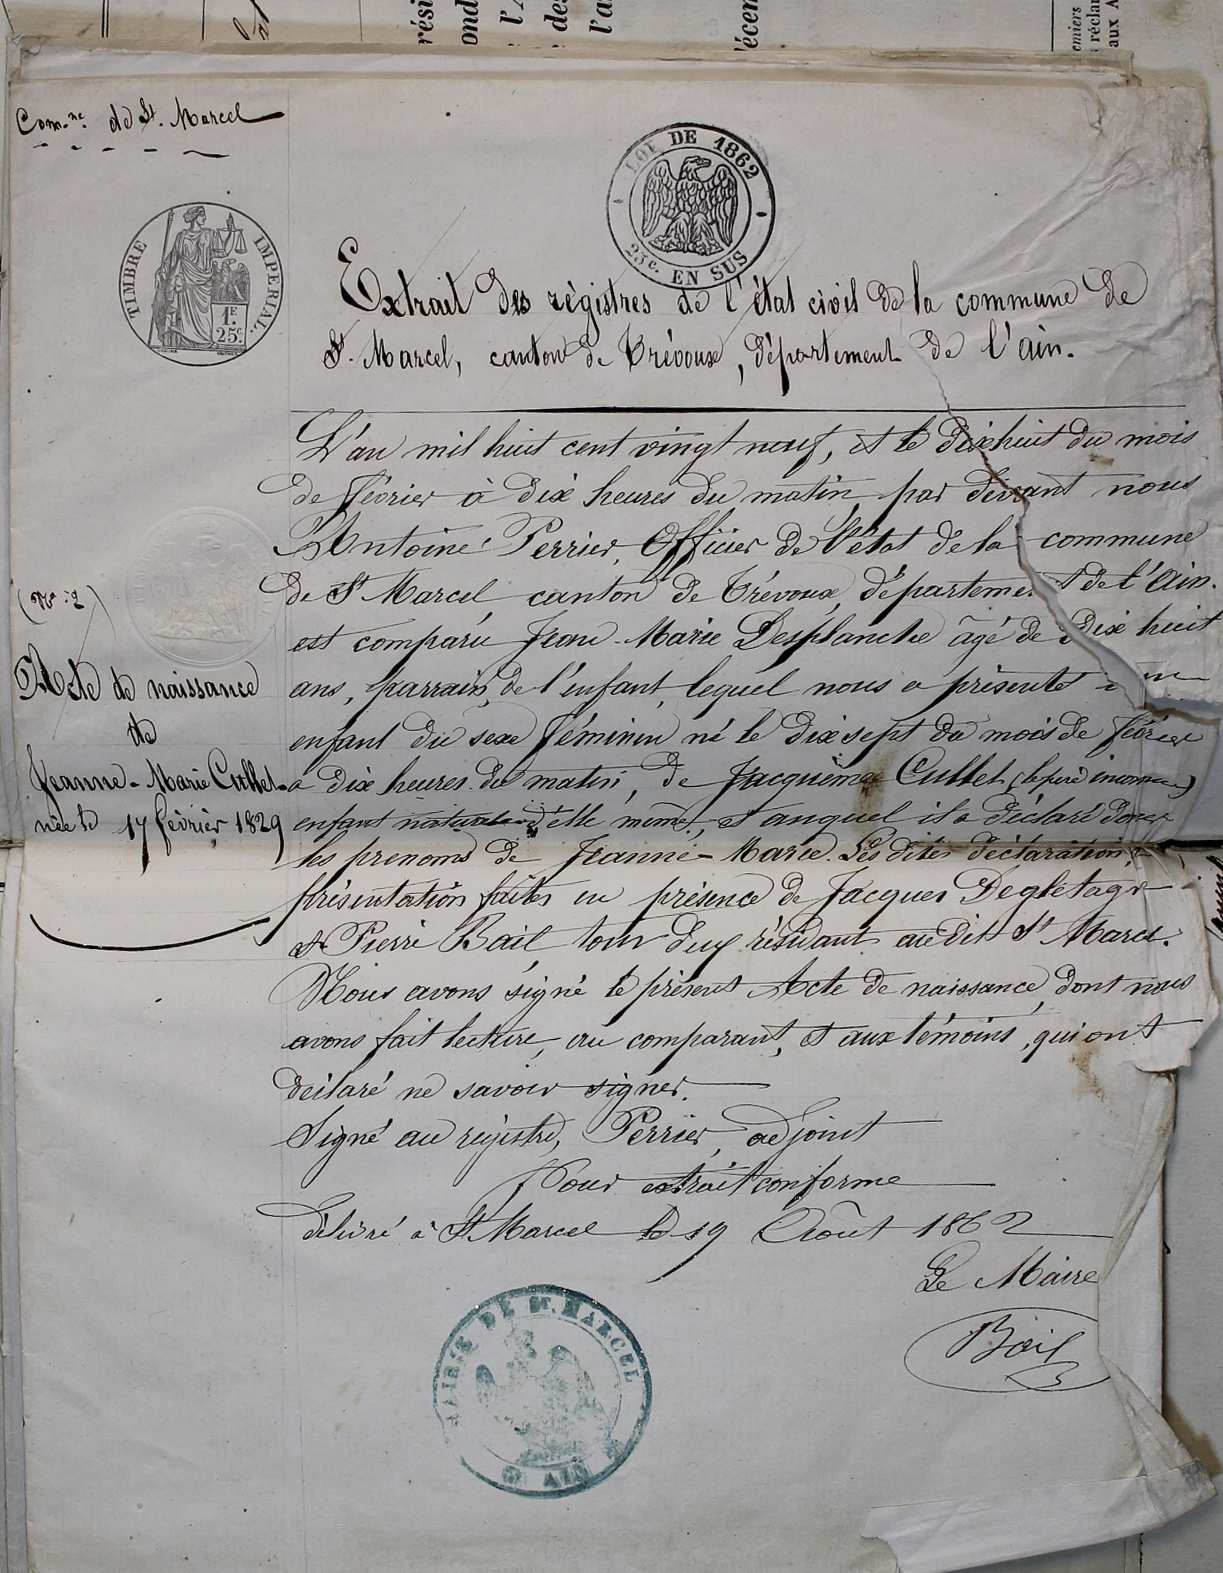 Com.ne de St. Marcel
LOI DE 1862
25c. EN SUS
TIMBRE IMPERIAL.
1F.
25c.
Extrait des règistres de l'état civil de la commune de
St. Marcel, canton de Trévoux, département de l'ain.
L'an mil huit cent vingt neuf, et le dixhuit du mois
de février à dix heures du matin, par devant nous
Antoine Perrier, Officier de l'état de la commune
de St Marcel canton de Trévoux, département de l'Ain.
est comparu Jean-Marie Desplanche âgé de dix huit
ans, parrain, de l'enfant, lequel nous a présenté un
enfant du sexe féminin né le dixsept du mois de février
à dix heures du matin, de Jacquème Cullet (le père inconnu)
enfant naturel d'elle même, et auquel il a déclaré donner
les prenoms de Jeanne-Marie. Les dites déclaration &
présentation faites en présence de Jacques Degletagne
et Pierre Bail, tous deux résidant audit St Marcel.
Nous avons signé le présent Acte de naissance, dont nous
avons fait lecture, au comparant, et aux témoins, qui ont
déclaré ne savoir signer.
Signé au registre, Perrier, adjoint
Pour extrait conforme
Délivré à St Marcel le 19 Août 1862
Le Maire
Bail
(No. 2)
Acte de naissance
de
Jeanne-Marie Cullet
née le 17 février 1829
MAIRIE DE ST. MARCEL
AIN
rési
ond
l'A
des
l'a
'écem
emiers
réclar
aux A